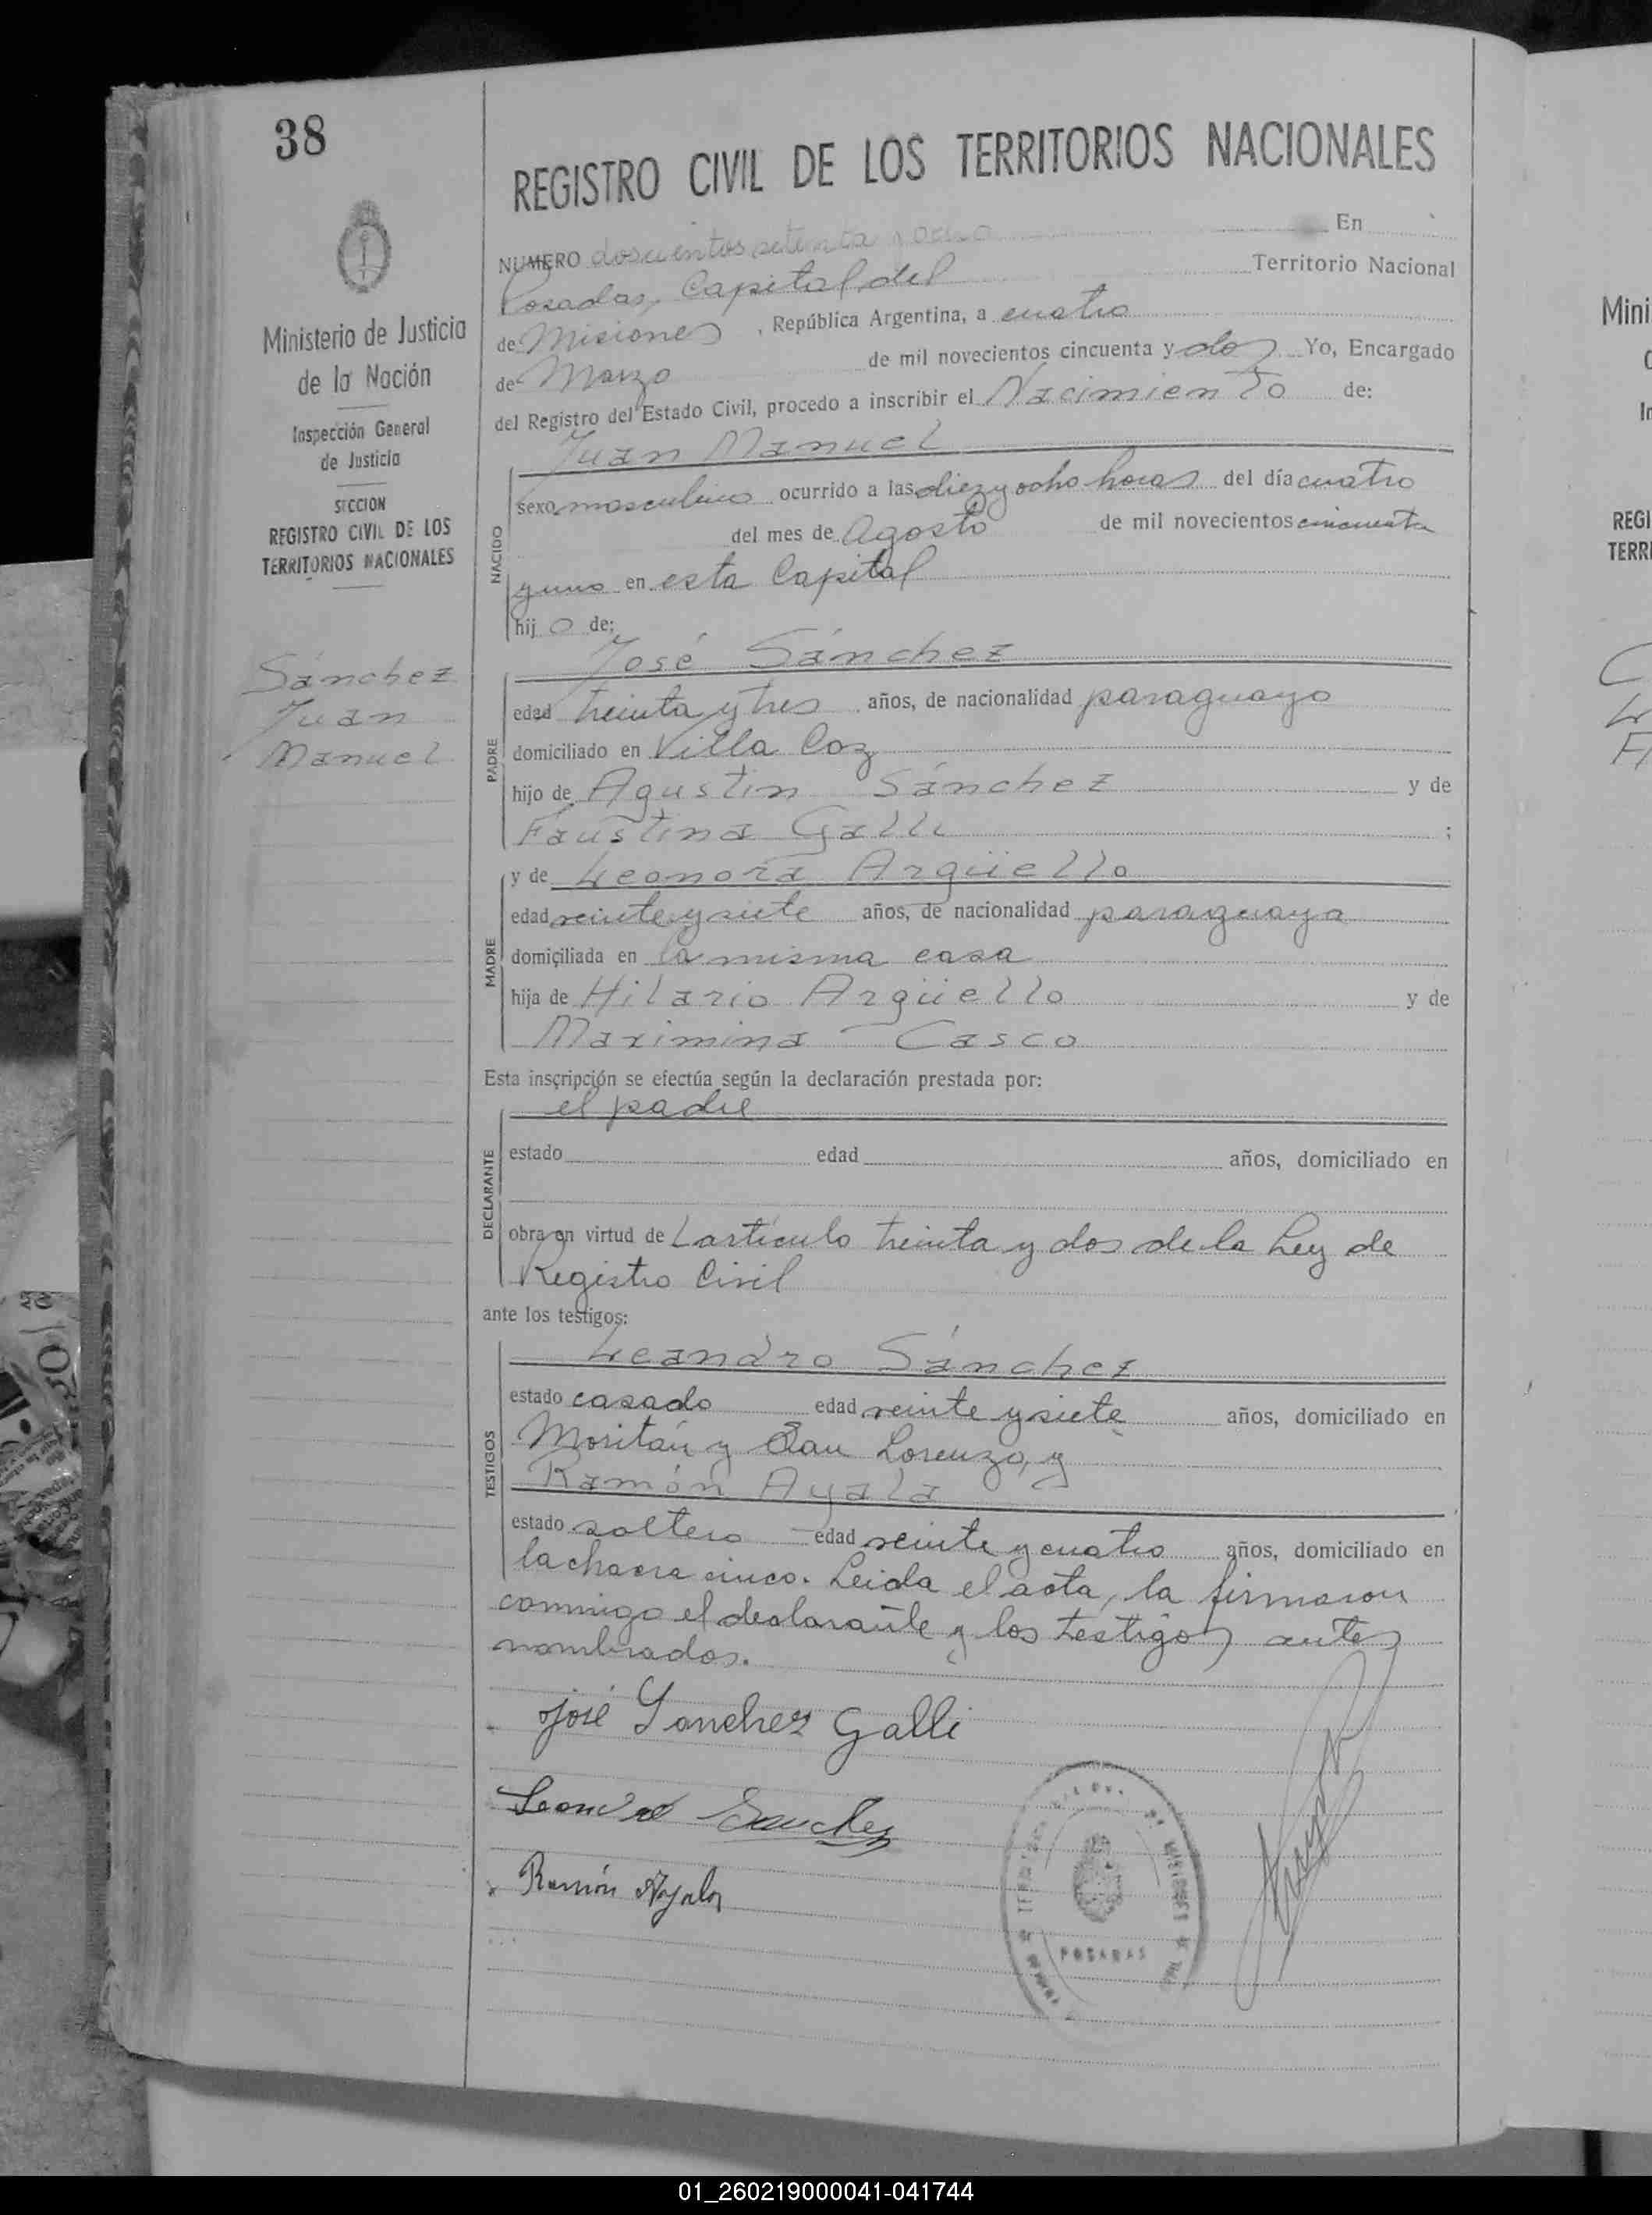 38
REGISTRO CIVIL DE LOS TERRITORIOS NACIONALES
Ministerio de Justicia
de la Nación
Inspección General
de Justicia
SECCION
REGISTRO CIVIL DE LOS
TERRITORIOS NACIONALES
Sánchez
Juan
Manuel
NUMERO doscientos setenta y ocho En
Posadas, Capital del Territorio Nacional
de Misiones, República Argentina, a cuatro
de Marzo de mil novecientos cincuenta y dos Yo, Encargado
del Registro del Estado Civil, procedo a inscribir el Nacimiento de:
Juan Manuel
NACIDO
sexo masculino ocurrido a las diez y ocho horas del día cuatro
del mes de Agosto de mil novecientos cincuenta
y uno en esta Capital
hijo de:
José Sánchez
PADRE
edad treinta y tres años, de nacionalidad paraguayo
domiciliado en Villa Coz
hijo de Agustin Sánchez y de
Faustina Galli ;
y de Leonora Argüello
MADRE
edad veinte y siete años, de nacionalidad paraguaya
domiciliada en la misma casa
hija de Hilario Argüello y de
Maximina Casco
Esta inscripción se efectúa según la declaración prestada por:
el padre
DECLARANTE
estado edad años, domiciliado en
obra en virtud de l artículo treinta y dos de la Ley de
Registro Civil
ante los testigos:
Leandro Sánchez
TESTIGOS
estado casado edad veinte y siete años, domiciliado en
Moritán y San Lorenzo, y
Ramón Ayala
estado soltero edad veinte y cuatro años, domiciliado en
la chacra cinco. Leida el acta, la firmaron
conmigo el declarante y los testigos antes
nombrados.
José Sanchez Galli
Leandro Sanchez
Ramón Ayala
POSADAS
Mini
REGI
TERRI
01_260219000041-041744